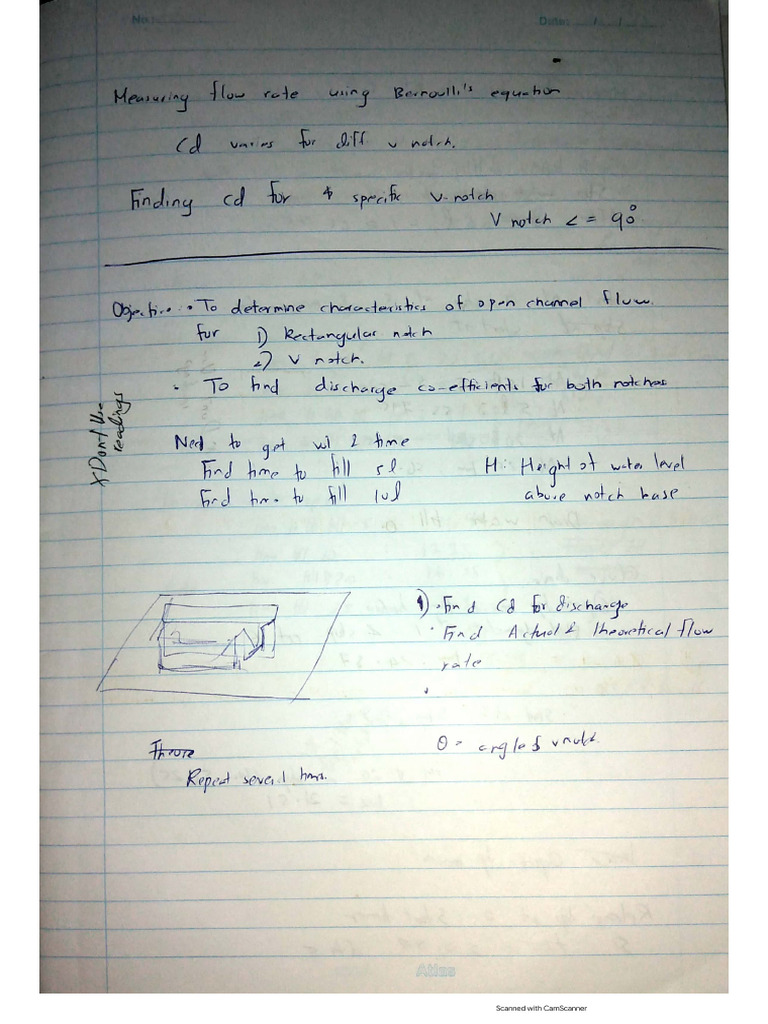 No:
Date: / /
Measuring flow rate using Bernoulli's equation
Cd varies for diff v notch.
Finding cd for specific v-notch
V notch ∠ = 90°
Objective: • To determine characteristics of open channel flow.
for 1) Rectangular notch
2) V notch.
• To find discharge co-efficients for both notches
X Dont Use
readings
Need to get vol & time
Find time to fill 5l
Find time to fill 10l
H: Height of water level
above notch base
1) • Find Cd for discharge
• Find Actual & theoretical flow
rate
θ = angle of vnotch.
Repeat several times.
Atlas
Scanned with CamScanner